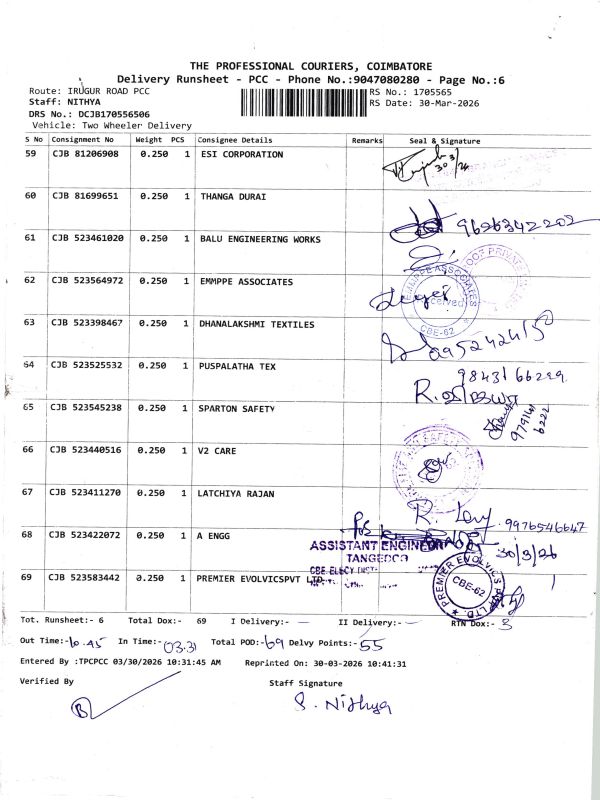 THE PROFESSIONAL COURIERS, COIMBATORE
Delivery Runsheet - PCC - Phone No.:9047080280 - Page No.:6
Route: IRUGUR ROAD PCC
RS No.: 1705565
Staff: NITHYA
RS Date: 30-Mar-2026
DRS No.: DCJB170556506
Vehicle: Two Wheeler Delivery
S No Consignment No Weight PCS Consignee Details Remarks Seal & Signature
59 CJB 81206908 0.250 1 ESI CORPORATION
60 CJB 81699651 0.250 1 THANGA DURAI
9626342202
61 CJB 523461020 0.250 1 BALU ENGINEERING WORKS
62 CJB 523564972 0.250 1 EMMPPE ASSOCIATES
EMMPPE ASSOCIATES
CBE-62
63 CJB 523398467 0.250 1 DHANALAKSHMI TEXTILES
64 CJB 523525532 0.250 1 PUSPALATHA TEX
65 CJB 523545238 0.250 1 SPARTON SAFETY
66 CJB 523440516 0.250 1 V2 CARE
67 CJB 523411270 0.250 1 LATCHIYA RAJAN
9976546647
68 CJB 523422072 0.250 1 A ENGG
ASSISTANT ENGINEER
TANGEDCO
30/3/26
69 CJB 523583442 0.250 1 PREMIER EVOLVICSPVT LTD.
PREMIER EVOLVICS PVT. LTD.
CBE-62
Tot. Runsheet:- 6 Total Dox:- 69 I Delivery:- – II Delivery:- – RTN Dox:- 3
Out Time:- 10.45 In Time:- 03.31 Total POD:- 69 Delvy Points:- 55
Entered By :TPCPCC 03/30/2026 10:31:45 AM Reprinted On: 30-03-2026 10:41:31
Verified By
Staff Signature
S. Nithya